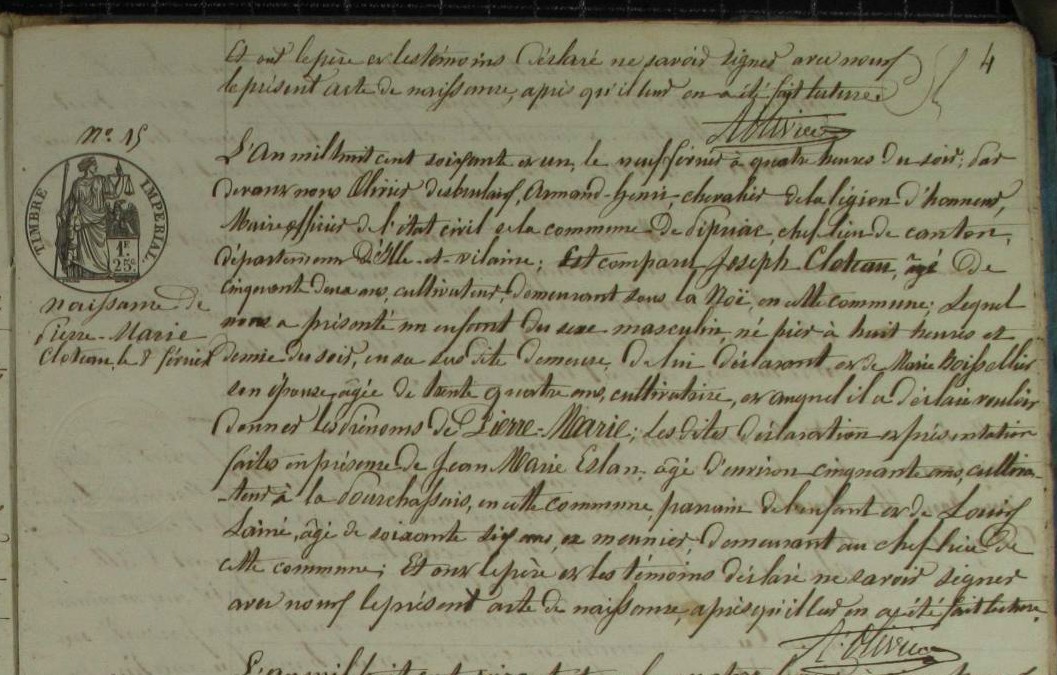 4
Et ont le père et les témoins déclaré ne savoir signer avec nous
le présent acte de naissance, après qu'il leur en a été fait lecture.
A Olivier
N° 15
TIMBRE IMPERIAL
1F. 25c
Naissance de
Pierre-Marie
Cloteau, le 8 février
L'An mil huit cent soixante et un, le neuf février à quatre heures du soir; par
devant nous Olivier Armand-Henri chevalier de la légion d'honneur,
Maire officier de l'état civil de la commune De Pipriac, chef lieu de canton,
département D'Ille-et-vilaine; Est comparu Joseph Cloteau, âgé De
cinquante deux ans, cultivateur, demeurant sous la Noë, en cette commune; Lequel
nous a présenté un enfant du sexe masculin, né hier à huit heures et
demie du soir, en sa sus dite demeure, de lui déclarant et de Marie Boisselier
son épouse, âgée de trente quatre ans, cultivatrice, et auquel il a déclaré vouloir
donner les prénoms de Pierre-Marie; Les dites déclaration et présentation
faites en présence de Jean Marie Eslan, âgé d'environ cinquante ans, cultiva-
-teur à la en cette commune, parrain de l'enfant et de Louis
Lainé, âgé de soixante six ans, ex meunier, demeurant au chef lieu De
cette commune; Et ont le père et les témoins déclaré ne savoir signer
avec nous le présent acte de naissance, après qu'il leur en a été fait lecture.
A Olivier
L'An mil huit cent soixante et un